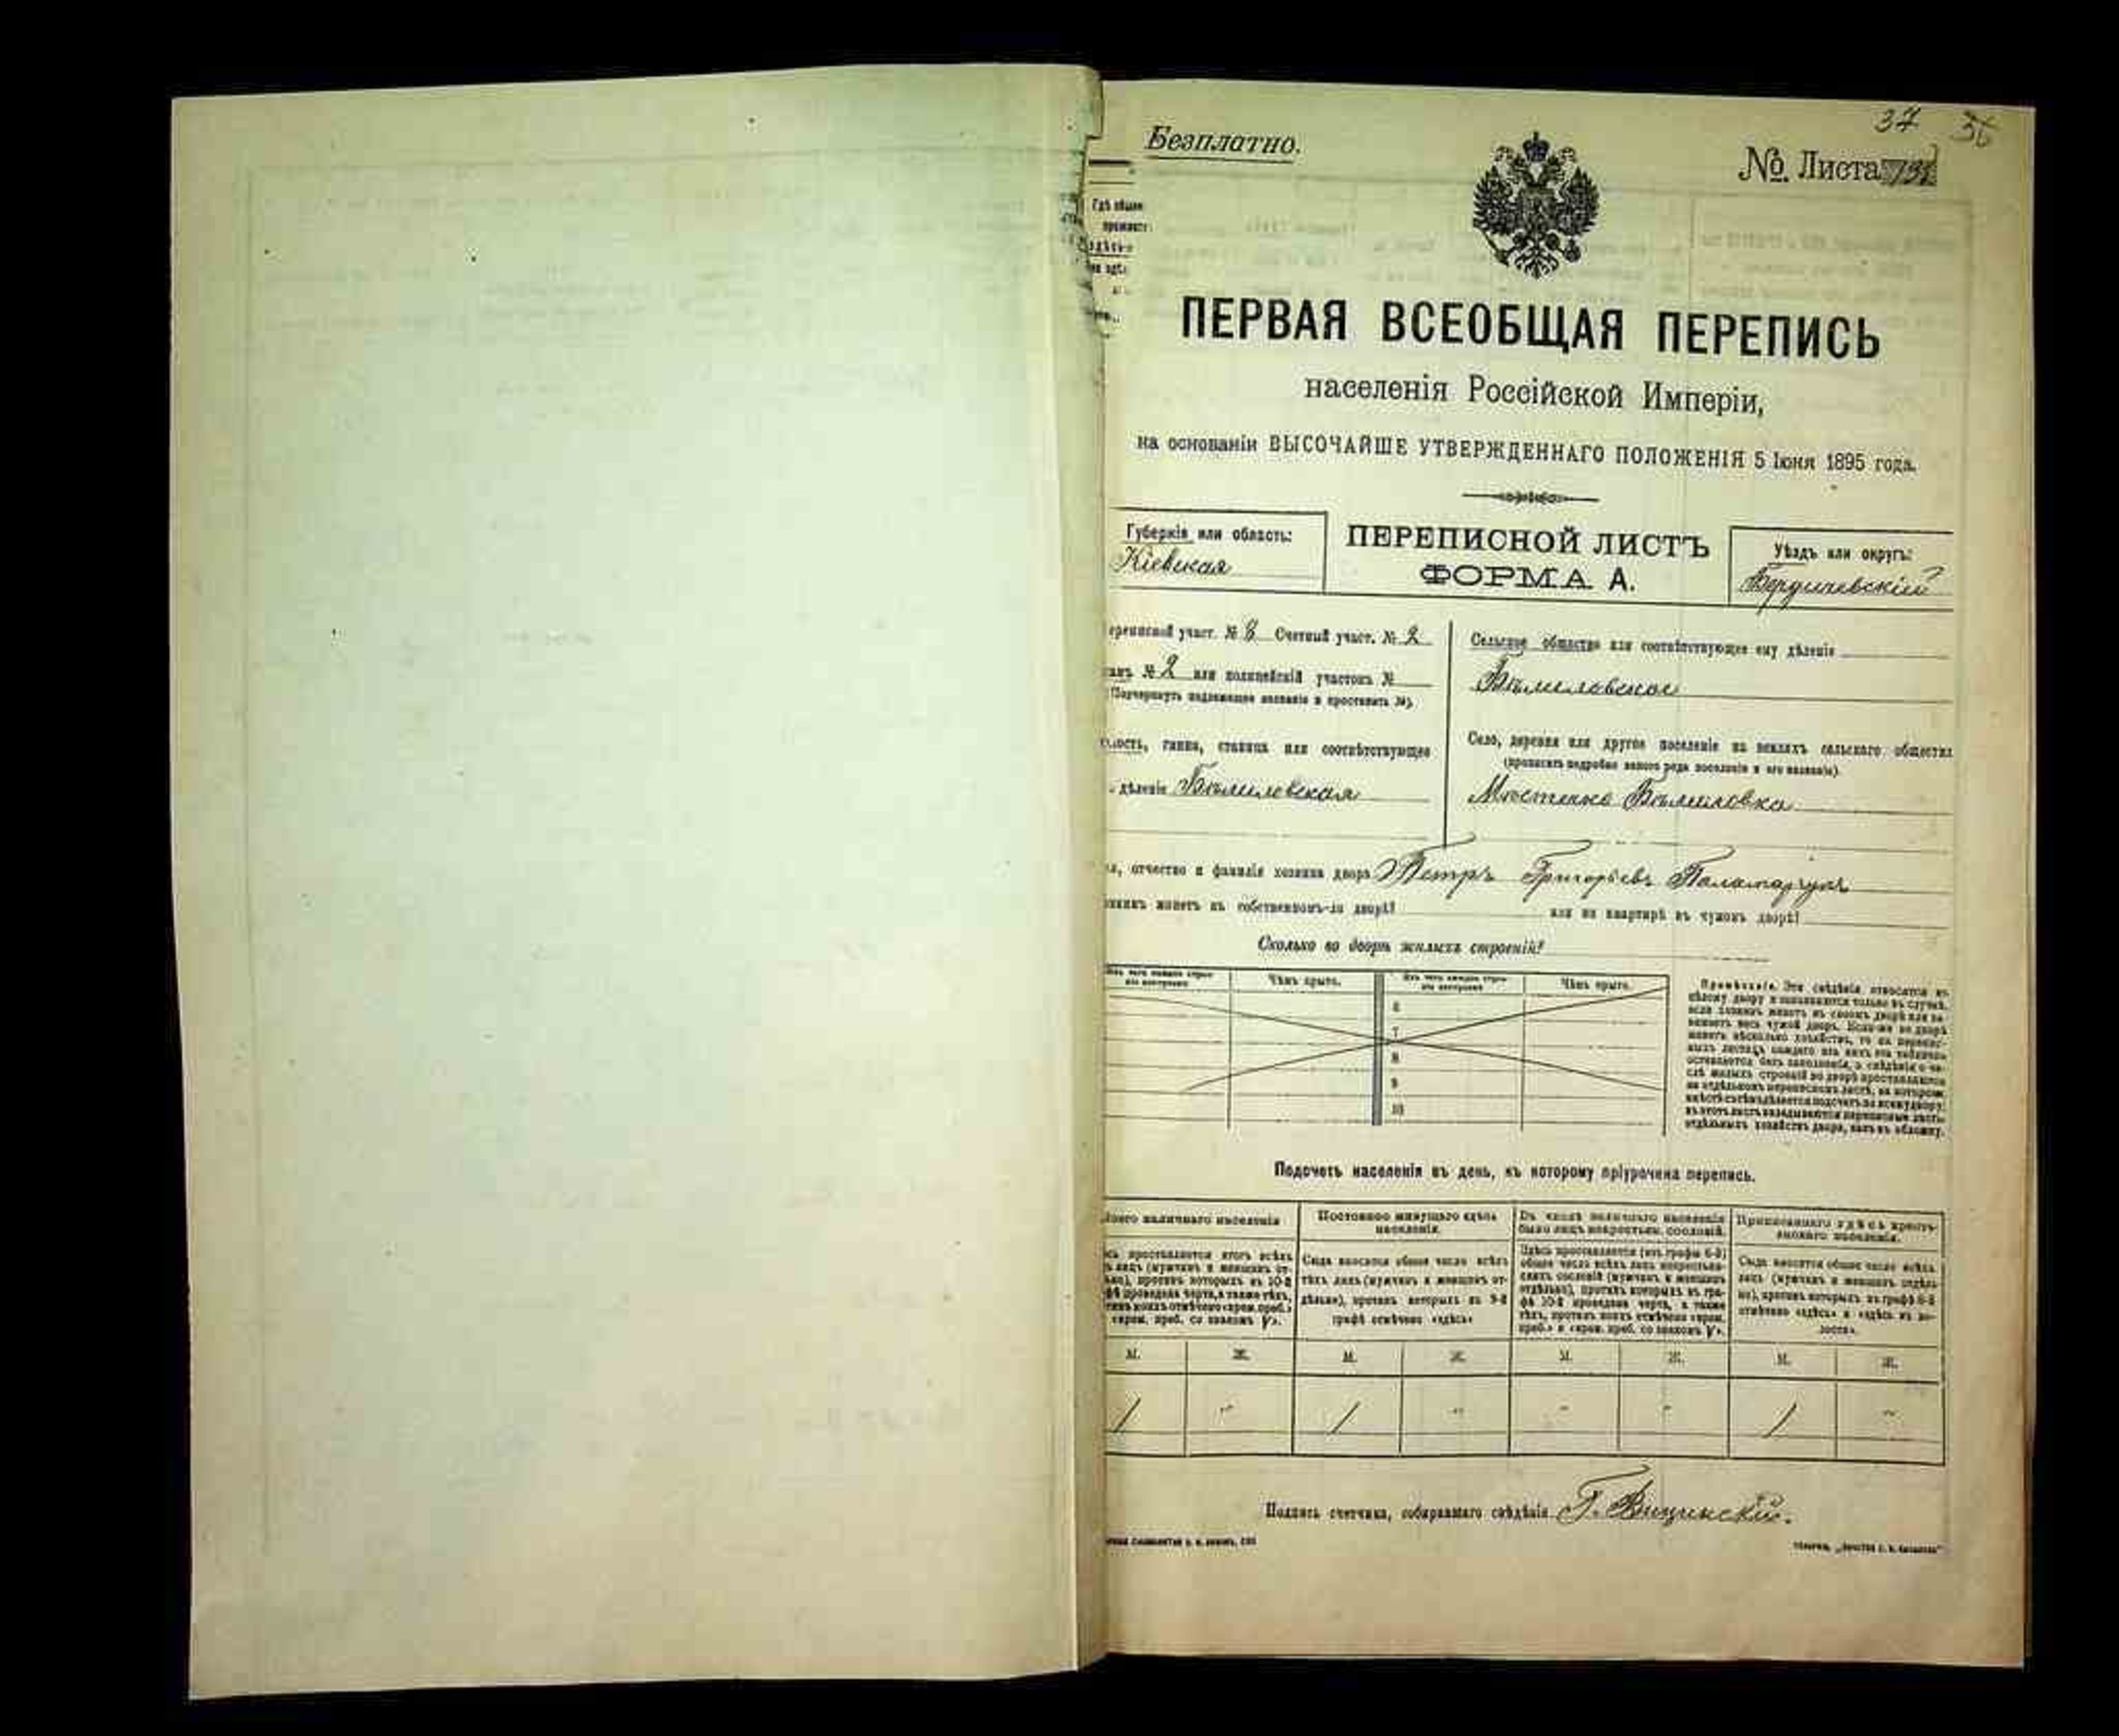 37 36
Безплатно.
№ Листа
Гдѣ обык
ПЕРВАЯ ВСЕОБЩАЯ ПЕРЕПИСЬ
населенія Россійской Имперіи,
на основаніи ВЫСОЧАЙШЕ УТВЕРЖДЕННАГО ПОЛОЖЕНІЯ 5 Іюня 1895 года.
Губернія или область:
Кіевская
ПЕРЕПИСНОЙ ЛИСТЪ
ФОРМА А.
Уѣздъ или округъ:
Бердичевскій
ереписной участ. № 8 Счетный участ. № 2
анъ № 2 или полицейскій участокъ №
(Подчеркнуть надлежащее названіе и проставить №).
лость, гмина, станица или соотвѣтствующее
дѣленіе Бѣлиловская
Сельское общество или соотвѣтствующее ему дѣленіе
Бѣлиловское
Село, деревня или другое поселеніе на земляхъ сельскаго общества
(прописать подробно какого рода поселеніе и его названіе).
Мѣстечко Бѣлиловка
я, отчество и фамилія хозяина двора Петръ Григорьевъ Паламарчукъ
зяинъ живетъ въ собственномъ-ли дворѣ? или на квартирѣ въ чужомъ дворѣ?
Сколько во дворѣ жилыхъ строеній?
Изъ чего каждое строе-
ніе построено
Чѣмъ крыто.
Изъ чего каждое строе-
ніе построено
Чѣмъ крыто.
6
7
8
9
10
Примѣчаніе. Эти свѣдѣнія относятся къ
цѣлому двору и заполняются только въ случаѣ,
если хозяинъ живетъ въ своемъ дворѣ или за-
нимаетъ весь чужой дворъ. Если-же во дворѣ
живетъ нѣсколько хозяйствъ, то на перепис-
ныхъ листахъ каждаго изъ нихъ эта табличка
оставляется безъ заполненія, а свѣдѣнія о чи-
слѣ жилыхъ строеній во дворѣ проставляются
на отдѣльномъ переписномъ листѣ, на которомъ
вмѣстѣ съ тѣмъ дѣлается подсчетъ по всему двору;
въ этотъ листъ вкладываются переписные листы
отдѣльныхъ хозяйствъ двора, какъ въ обложку.
Подсчетъ населенія въ день, къ которому пріурочена перепись.
Всего наличнаго населенія
сь проставляется итогъ всѣхъ
ъ лицъ (мужчинъ и женщинъ от-
ьно), противъ которыхъ въ 10-й
фѣ проведена черта, а также тѣхъ,
тивъ коихъ отмѣчено «врем. преб.»
«врем. преб. со знакомъ V».
Постоянно живущаго здѣсь
населенія.
Сюда вносится общее число всѣхъ
тѣхъ лицъ (мужчинъ и женщинъ от-
дѣльно), противъ которыхъ въ 9-й
графѣ отмѣчено «здѣсь»
Въ числѣ наличнаго населенія
было лицъ некрестьян. сословій.
Здѣсь проставляется (изъ графы 6-й)
общее число всѣхъ лицъ некрестьян-
скихъ сословій (мужчинъ и женщинъ
отдѣльно), противъ которыхъ въ гра-
фѣ 10-й проведена черта, а также
тѣхъ, противъ коихъ отмѣчено «врем.
преб.» и «врем. преб. со знакомъ V».
Приписаннаго здѣсь кресть-
янскаго населенія.
Сюда вносится общее число всѣхъ
лицъ (мужчинъ и женщинъ отдѣль-
но), противъ которыхъ въ графѣ 8-й
отмѣчено «здѣсь» и «здѣсь въ во-
лости».
М. Ж. М. Ж. М. Ж. М. Ж.
1 " 1 " " " 1 "
Подпись счетчика, собиравшаго свѣдѣнія Г. Вицинскій.